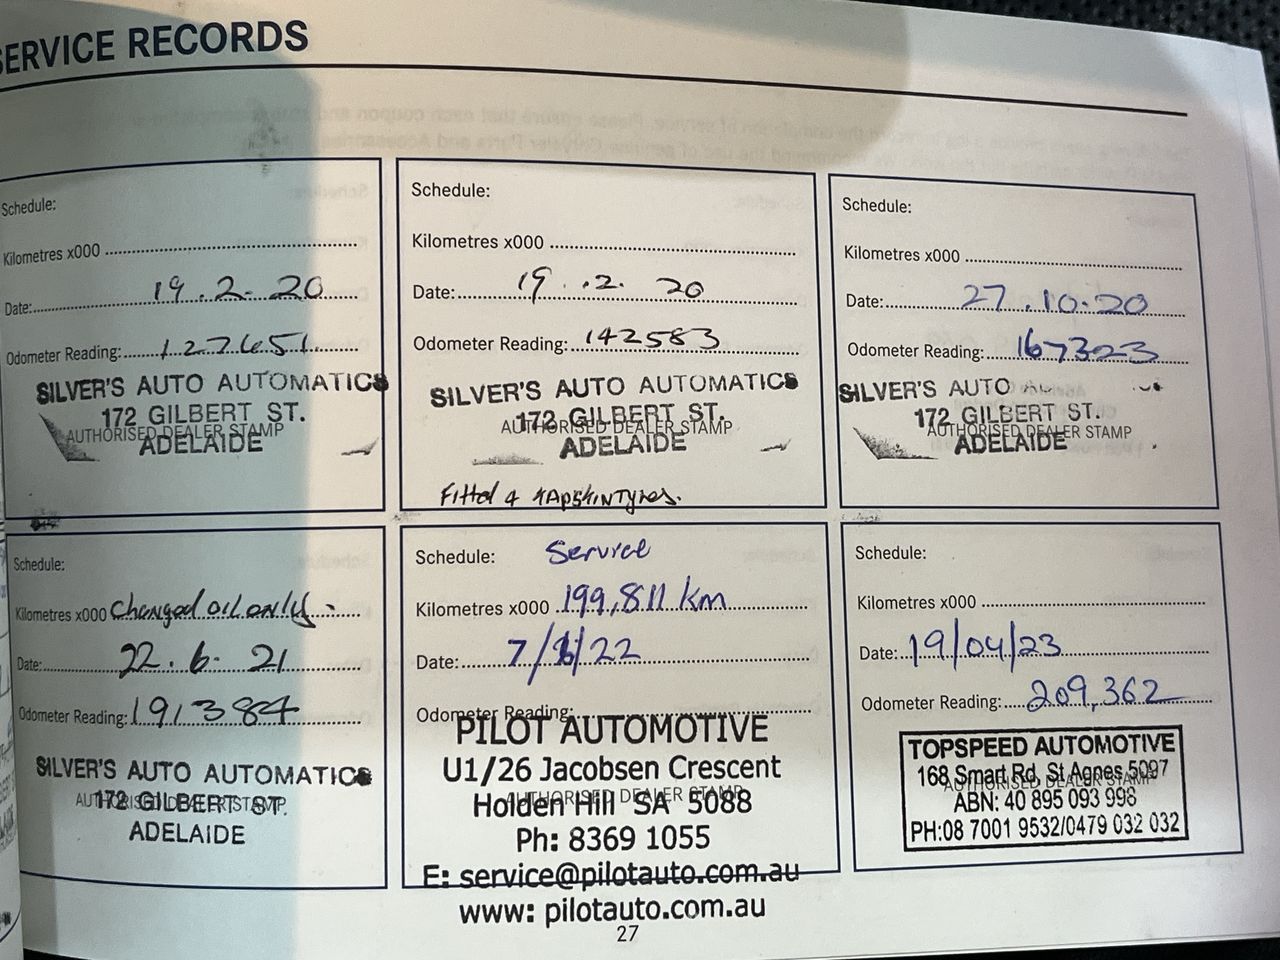 SERVICE RECORDS
Schedule:
Kilometres x000
Date: 19.2.20
Odometer Reading: 127651
SILVER'S AUTO AUTOMATICS
172 GILBERT ST.
AUTHORISED DEALER STAMP
ADELAIDE
Schedule:
Kilometres x000
Date: 19.2.20
Odometer Reading: 142583
SILVER'S AUTO AUTOMATICS
172 GILBERT ST.
AUTHORISED DEALER STAMP
ADELAIDE
Fitted 4
Schedule:
Kilometres x000
Date: 27.10.20
Odometer Reading: 167323
SILVER'S AUTO
172 GILBERT ST.
AUTHORISED DEALER STAMP
ADELAIDE
Schedule:
Kilometres x000 Changed oil only -
Date: 22.6.21
Odometer Reading: 191384
SILVER'S AUTO AUTOMATICS
AUTHORISED DEALER STAMP
172 GILBERT ST.
ADELAIDE
Schedule: Service
Kilometres x000 199,811 km
Date: 7/ /22
Odometer Reading:
PILOT AUTOMOTIVE
U1/26 Jacobsen Crescent
AUTHORISED DEALER STAMP
Holden Hill SA 5088
Ph: 8369 1055
E: service@pilotauto.com.au
www: pilotauto.com.au
Schedule:
Kilometres x000
Date: 19/04/23
Odometer Reading: 209,362
TOPSPEED AUTOMOTIVE
168 Smart Rd, St Agnes 5097
AUTHORISED DEALER STAMP
ABN: 40 895 093 998
PH:08 7001 9532/0479 032 032
27